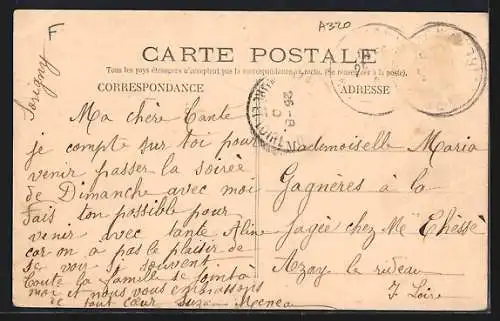 F
A320
Sorigny
CARTE POSTALE
Tous les pays étrangers n'acceptent pas la correspondance au recto. (Se renseigner à la poste).
CORRESPONDANCE
ADRESSE
26-8
Ma chère Tante
je compte sur toi pour
venir passer la soirée
de Dimanche avec moi
fais ton possible pour
venir avec tante Aline
car on a pas le plaisir de
se voir si souvent.
Toute la famille se joint à
moi et nous vous embrassons
de tout cœur Suzanne
Mademoiselle Maria
Gagnères à la
chez Me
Azay le rideau
I. Loire